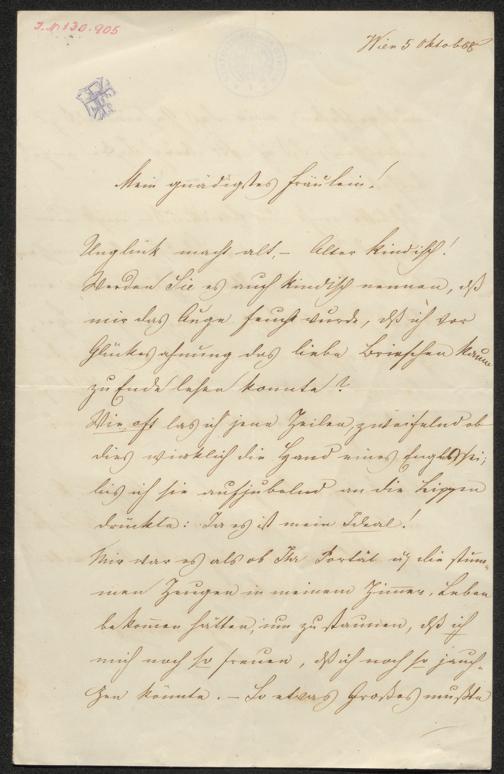 I.N. 130.905
Wien 5 Oktob
Mein gnädigstes Fräulein!
Unglück macht alt, – Alter kindisch!
Werden Sie es auch kindisch nennen, dß
mir das Auge feucht wurde, dß ich vor
Glückes ahnung das liebe Briefchen kaum
zu Ende lesen konnte?
Wie oft las ich jene Zeilen zweifelnd ob
dies wirklich die Hand eines Engels sei;
bis ich sie aufjubelnd an die Lippen
drückte: Ja es ist mein Ideal!
Mir war es als ob Ihr Portät u die stum-
men Zeugen in meinem Zimmer, Leben
bekommen hätten, um zu staunen, dß ich
mich noch so freuen, dß ich noch so jauch-
zen könnte. – So etwas Großes mußte